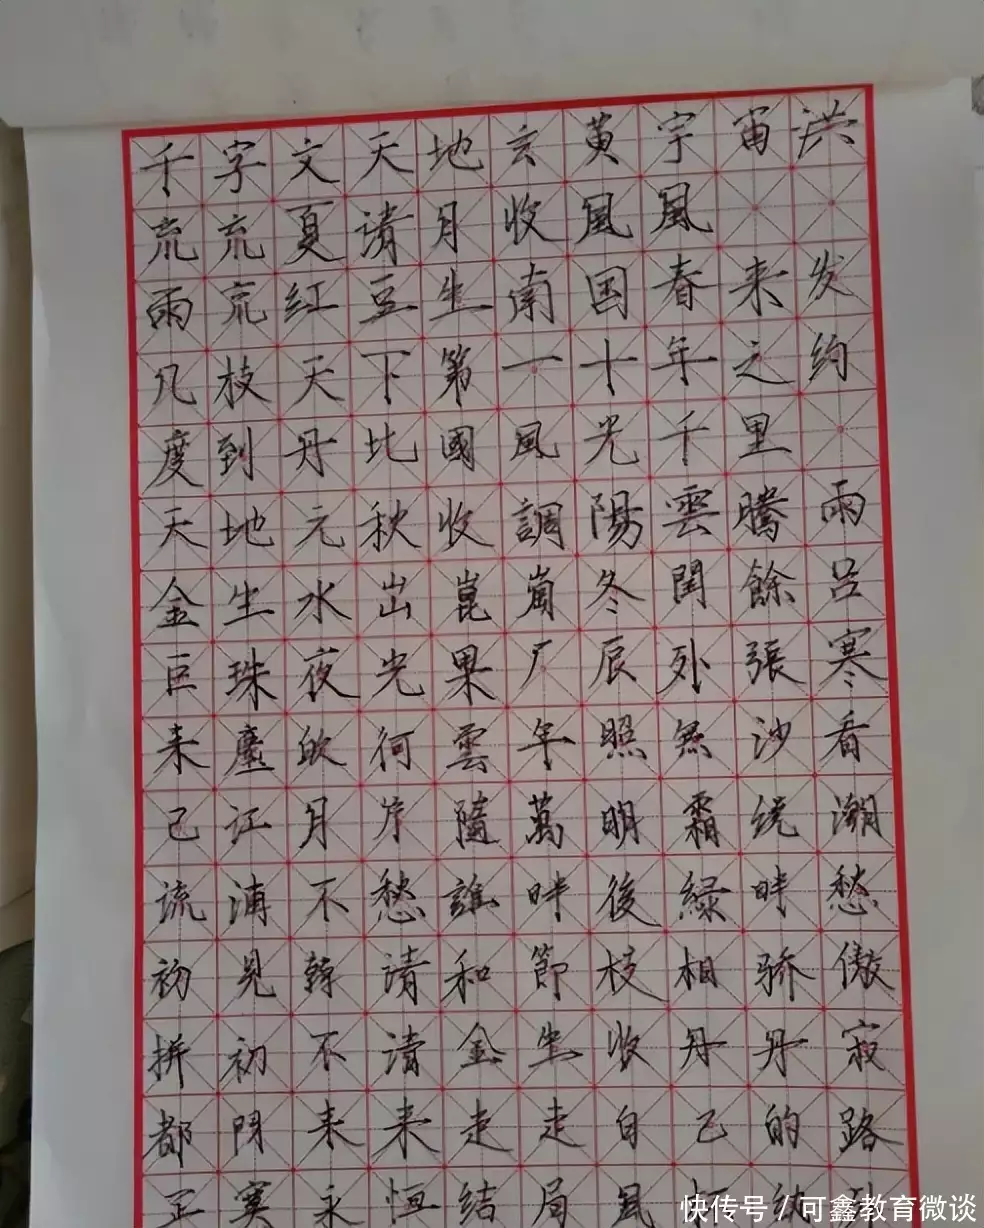 千字文天地玄黄宇宙洪
荒荒夏請月收風風
雨荒红豆生南国春来发
几枝天下第一十年之约
度到丹比國風光千里
天地元秋收調陽雲騰雨
金生水出崑崗冬閏餘吕
巨珠夜光果厂辰列張寒
来塵欲何雲年照無沙看
己江月岸隨萬明霜绕潮
流浦不愁誰畔後緑畔愁
初見韓请和節枝相骄傲
拼初不请金生收丹丹寂
都門来来走走自己的路
正寞永恒结局風
快传号/可鑫教育微谈